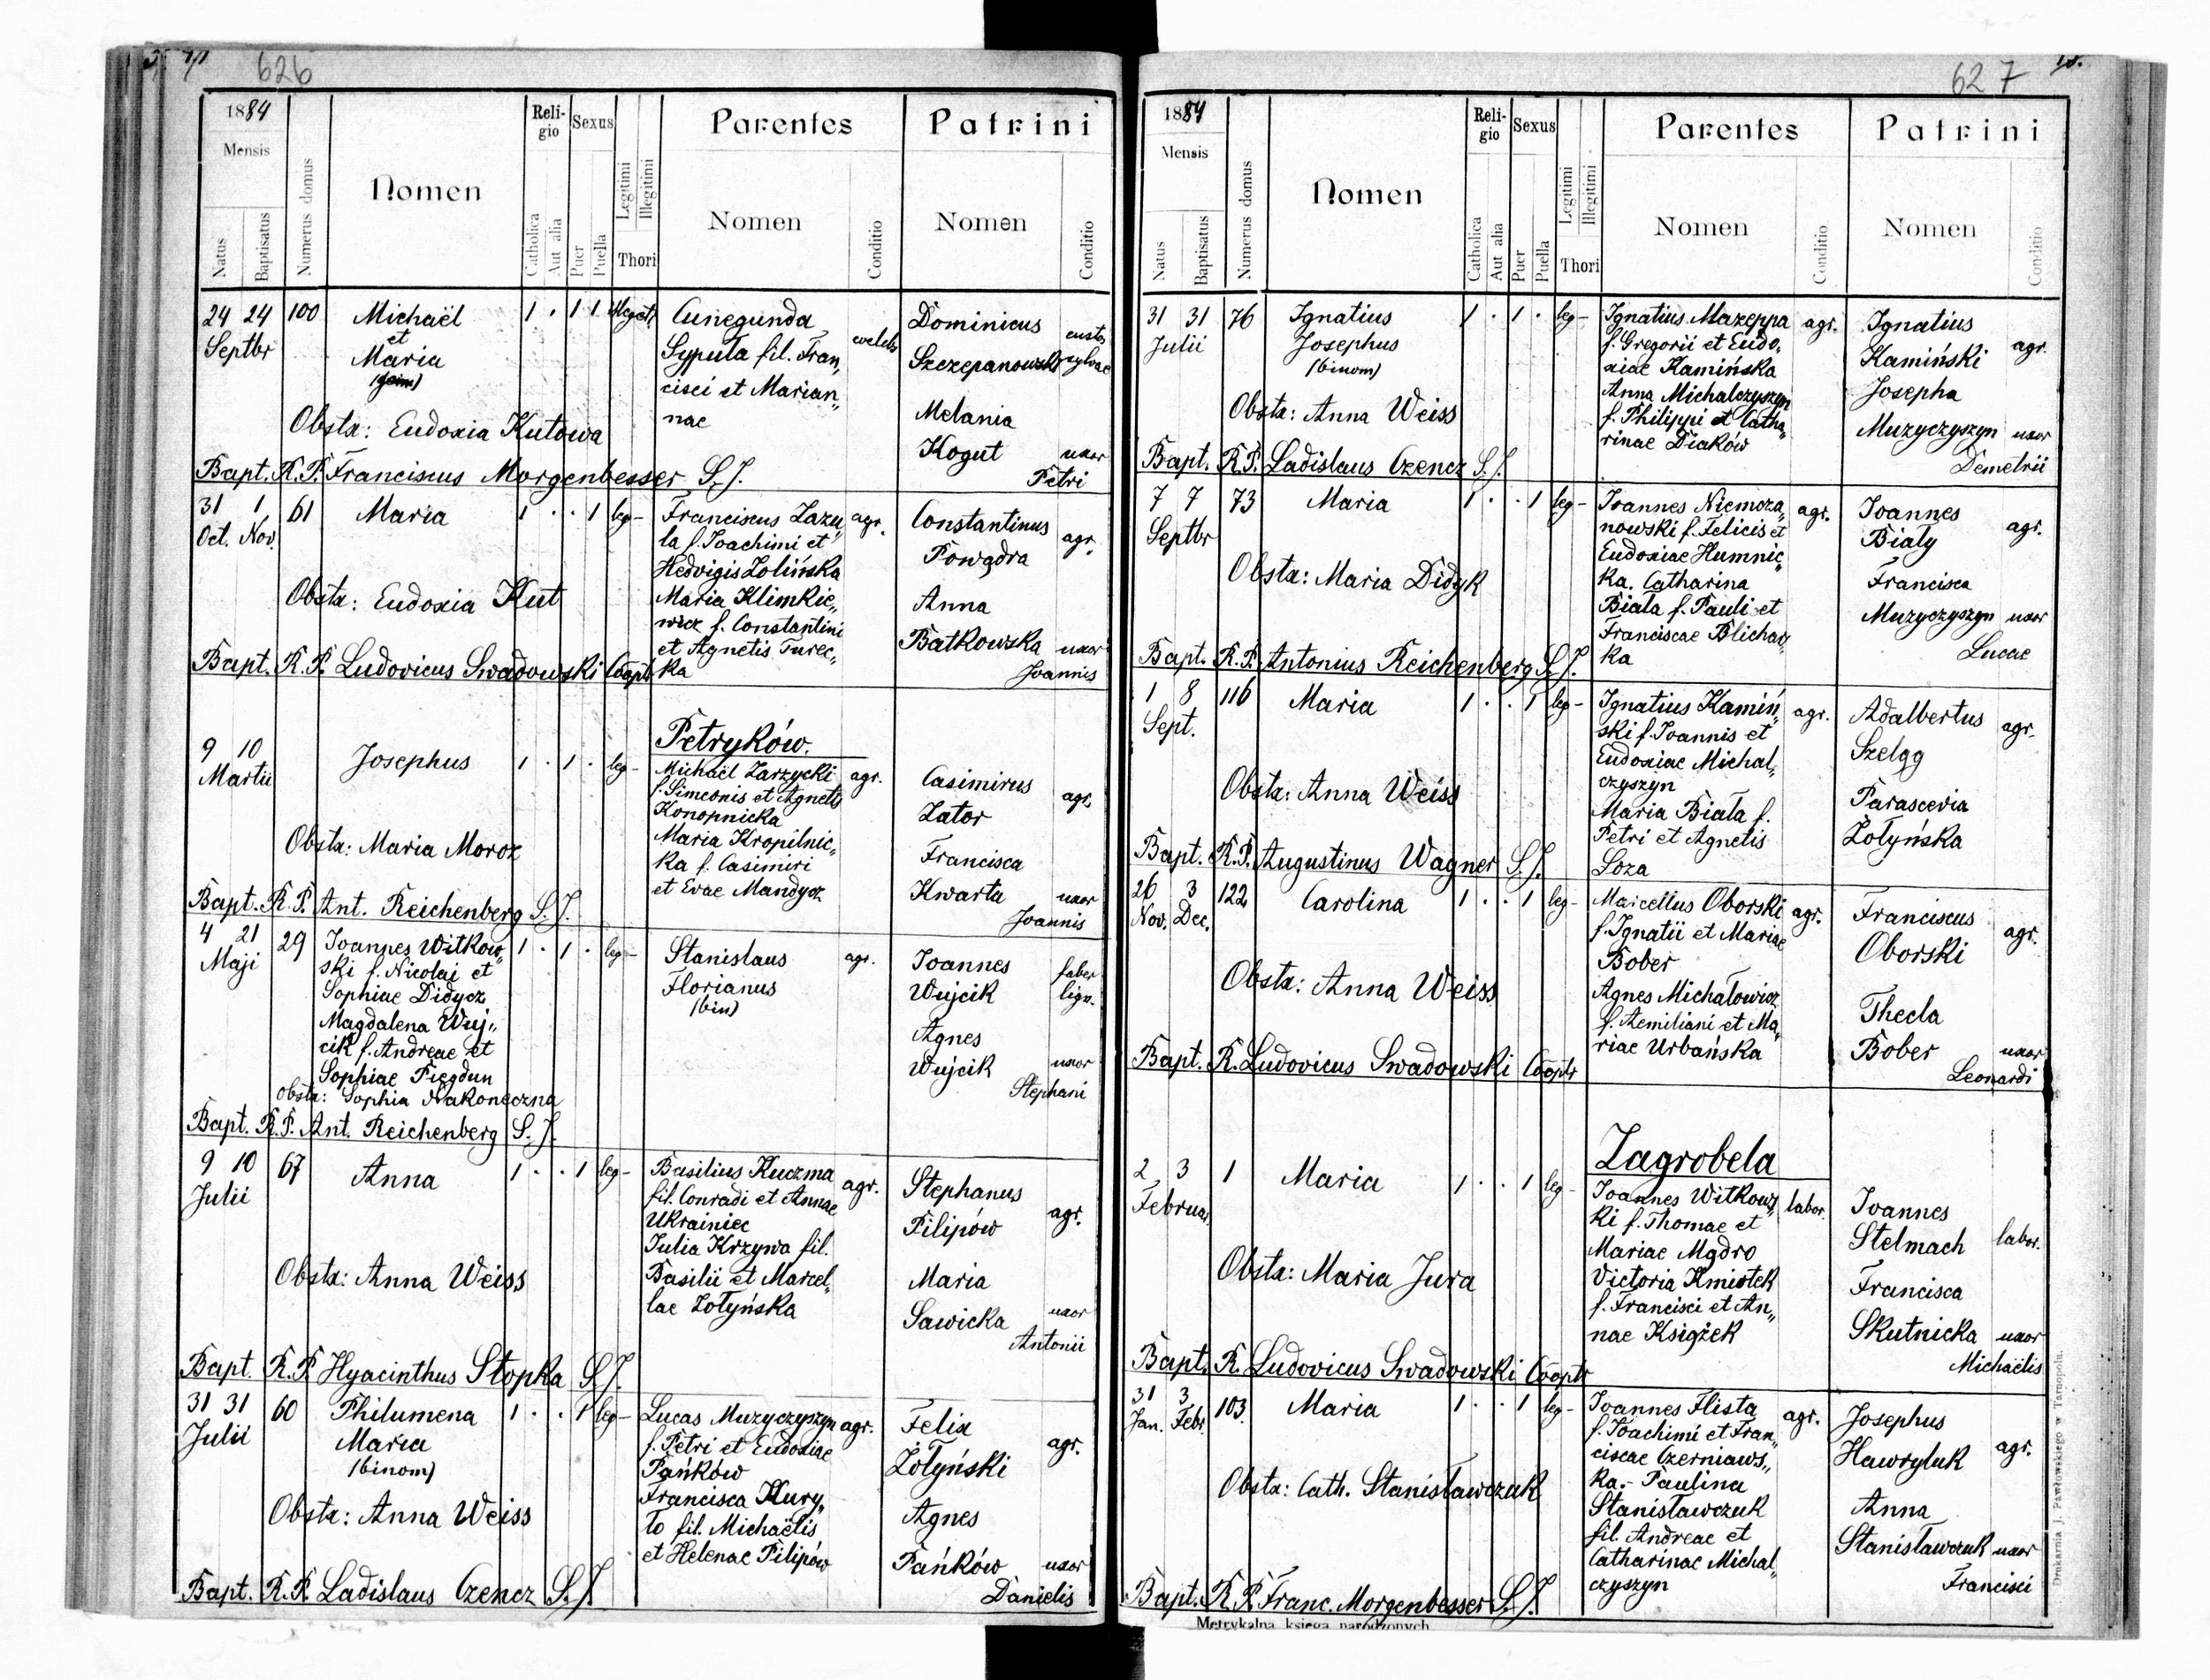 626
1884
Mensis
Natus
Baptisatus
Numerus domus
Nomen
Religio
Catholica
Aut alia
Sexus
Puer
Puella
Legitimi
Illegitimi
Thori
Parentes
Nomen
Conditio
Patrini
Nomen
Conditio
24 24 100 Michaël 1 . 1 1 illegit. Cunegunda coelebs Dominicus custos
Septbr et Sypuła fil. Fran„ Szczepanowski sylvae
Maria cisci et Marian„
(gem) nae Melania
Obstx: Eudoxia Kutowa Kogut uxor
Bapt. R.P. Franciscus Morgenbesser S.J. Petri
31 1 61 Maria 1 . . 1 leg- Franciscus Zazu„ agr. Constantinus agr.
Oct. Nov. la f. Joachimi et Powądra
Hedvigis Zolińska
Obstx: Eudoxia Kut Maria Klimkie„ Anna
wicz f. Constantini Batkowska uxor
et Agnetis Turec„ Joannis
Bapt. R.P. Ludovicus Swadowski Cooptr ka
Petryków.
9 10 Josephus 1 . 1 . leg- Michaël Zarzycki agr. Casimirus agr.
Martii f. Simeonis et Agnetis Zator
Konopnicka
Obstx: Maria Moroz Maria Kropilnic„ Francisca
ka f. Casimiri Kwarta uxor
et Evae Mandycz Joannis
Bapt. R.P. Ant. Reichenberg S.J.
4 21 29 Joannes Witkow„ 1 . 1 . leg- Stanislaus agr. Joannes faber
Maji ski f. Nicolai et Florianus Wujcik lign.
Sophiae Didycz (bin)
Magdalena Wuj„ Agnes
cik f. Andreae et Wujcik uxor
Sophiae Fiegdun Stephani
Obstx: Sophia Nakoneczna
Bapt. R.P. Ant. Reichenberg S.J.
9 10 67 Anna 1 . . 1 leg- Basilius Kuczma agr. Stephanus agr.
Julii fil. Conradi et Annae Filipów
Ukrainiec
Julia Krzywa fil.
Obstx: Anna Weiss Basilii et Marcel„ Maria
lae Zołyńska Sawicka uxor
Antonii
Bapt. R.P. Hyacinthus Stopka S.J.
31 31 60 Philumena 1 . . 1 leg- Lucas Muzyczyszyn agr. Felix agr.
Julii Maria f. Petri et Eudoxiae Żołyński
(binom) Pańków
Francisca Kury„ Agnes
Obstx: Anna Weiss ło fil. Michaëlis Pańków uxor
et Helenae Filipów Danielis
Bapt. R.P. Ladislaus Czencz S.J.
627
1884
Mensis
Natus
Baptisatus
Numerus domus
Nomen
Religio
Catholica
Aut alia
Sexus
Puer
Puella
Legitimi
Illegitimi
Thori
Parentes
Nomen
Conditio
Patrini
Nomen
Conditio
31 31 76 Ignatius 1 . 1 . leg- Ignatius Mazeppa agr. Ignatius agr.
Julii Josephus f. Gregorii et Eudo„ Kamiński
(binom) xiae Kamińska Josepha
Obstx: Anna Weiss Anna Michalczyszyn Muzyczyszyn uxor
f. Philippi et Catha„ Demetrii
rinae Diaków
Bapt. R.P. Ladislaus Czencz S.J.
7 7 73 Maria 1 . . 1 leg- Joannes Niemcza„ agr. Joannes agr.
Septbr nowski f. Felicis et Biały
Eudoxiae Humnic„
Obstx: Maria Didyk ka. Catharina Francisca
Biała f. Pauli et Muzyczyszyn uxor
Franciscae Blichar„ Lucae
ka
Bapt. R.P. Antonius Reichenberg S.J.
1 8 116 Maria 1 . . 1 leg- Ignatius Kamiń„ agr. Adalbertus agr.
Sept. ski f. Joannis et Szeląg
Eudoxiae Michal„
czyszyn
Obstx: Anna Weiss Maria Biała f. Parascevia
Petri et Agnetis Żołyńska
Łoza
Bapt. R.P. Augustinus Wagner S.J.
26 3 122 Carolina 1 . . 1 leg- Marcellus Oborski agr. Franciscus agr.
Nov. Dec. f. Ignatii et Mariae Oborski
Bober
Obstx: Anna Weiss Agnes Michałowicz Thecla
f. Aemiliani et Ma„ Bober uxor
riae Urbańska Leonardi
Bapt. R. Ludovicus Swadowski Cooptr
Zagrobela
2 3 1 Maria 1 . . 1 leg- Joannes Witkows„ labor. Joannes labor.
Februar. ki f. Thomae et Stelmach
Mariae Mądro
Obstx: Maria Jura Victoria Kmiotek Francisca
f. Francisci et An„ Skutnicka uxor
nae Książek Michaëlis
Bapt. R. Ludovicus Swadowski Cooptr
31 3 103. Maria 1 . . 1 leg- Joannes Flista agr. Josephus agr.
Jan. Febr. f. Joachimi et Fran„ Hawryluk
ciscae Czerniaws„
Obstx: Cath. Stanisławczuk ka.- Paulina Anna
Stanisławczuk Stanisławczuk uxor
fil. Andreae et Francisci
Catharinae Michal„
czyszyn
Bapt. R.P. Franc. Morgenbesser S.J.
Metrykalna księga narodzonych
Drukarnia J. Pawłowskiego w Tarnopolu.